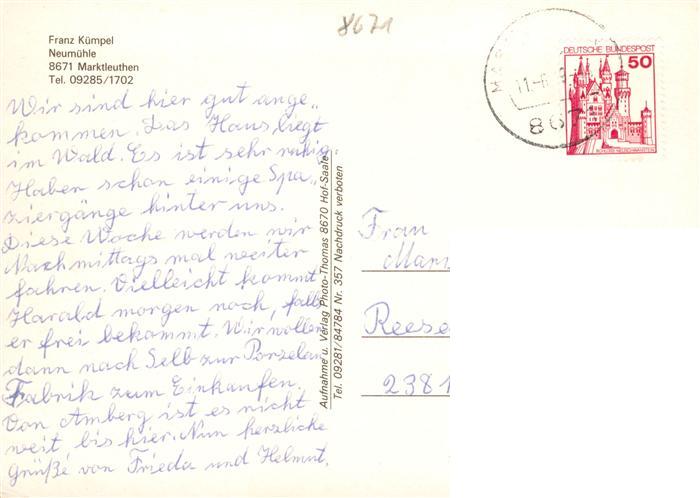 8671
Franz Kümpel
Neumühle
8671 Marktleuthen
Tel. 09285/1702
DEUTSCHE BUNDESPOST
50
SCHLOSS NEUSCHWANSTEIN
867
Wir sind hier gut ange„
kommen. Das Haus liegt
im Wald. Es ist sehr ruhig.
Haben schon einige Spa„
ziergänge hinter uns.
Diese Woche werden wir
Nachmittags mal weiter
fahren. Vielleicht kommt
Harald morgen noch, falls
er frei bekommt. Wir wollen
dann nach Selb zur Porzelan
Fabrik zum Einkaufen.
Von Amberg ist es nicht
weit bis hier. Nun herzliche
Grüße von Frieda und Helmut.
Aufnahme u. Verlag Photo-Thomas 8670 Hof-Saale
Tel. 09281/84784 Nr. 357 Nachdruck verboten
Frau
Reese
2381